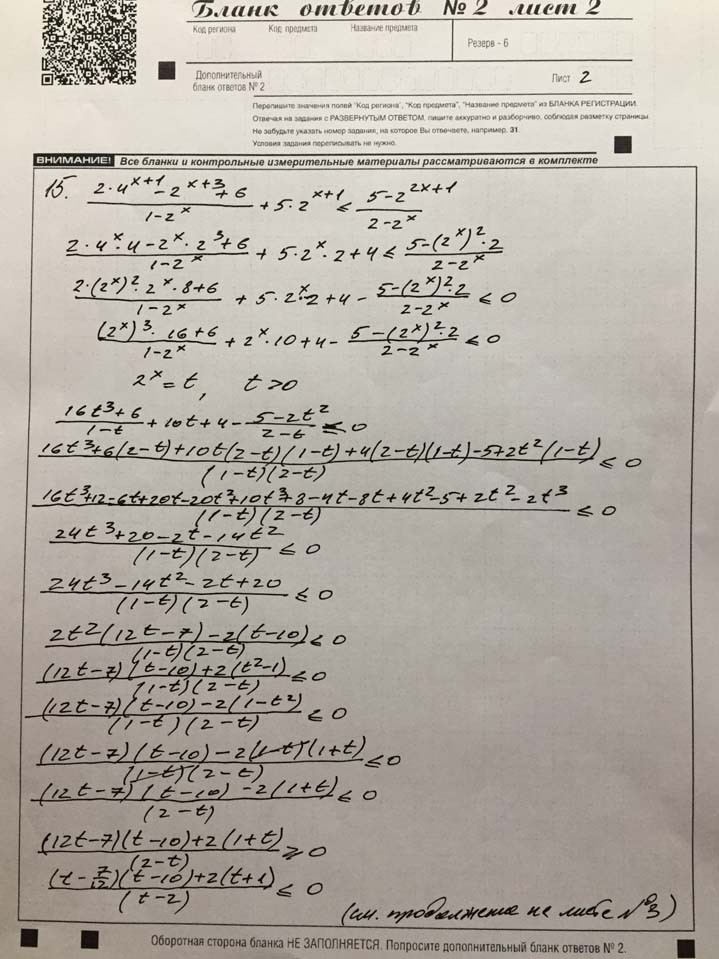 Бланк ответов № 2 лист 2
Код региона Код предмета Название предмета
Резерв - 6
Дополнительный
бланк ответов № 2
Лист 2
Перепишите значения полей "Код региона", "Код предмета", "Название предмета" из БЛАНКА РЕГИСТРАЦИИ.
Отвечая на задания с РАЗВЕРНУТЫМ ОТВЕТОМ, пишите аккуратно и разборчиво, соблюдая разметку страницы.
Не забудьте указать номер задания, на которое Вы отвечаете, например, 31.
Условия задания переписывать не нужно.
ВНИМАНИЕ! Все бланки и контрольные измерительные материалы рассматриваются в комплекте
15. (2·4^(x+1) - 2^(x+3) + 6)/(1-2^x) + 5·2^(x+1) ≤ (5-2^(2x+1))/(2-2^x)
(2·4^x·4 - 2^x·2^3 + 6)/(1-2^x) + 5·2^x·2 + 4 ≤ (5-(2^x)^2·2)/(2-2^x)
(2·(2^x)^2·2^x·8+6)/(1-2^x) + 5·2^x·2+4 - (5-(2^x)^2·2)/(2-2^x) ≤ 0
((2^x)^3·16+6)/(1-2^x) + 2^x·10+4 - (5-(2^x)^2·2)/(2-2^x) ≤ 0
2^x = t, t>0
(16t^3+6)/(1-t) + 10t+4 - (5-2t^2)/(2-t) ≤ 0
(16t^3+6(2-t)+10t(2-t)(1-t)+4(2-t)(1-t)-5+2t^2(1-t))/((1-t)(2-t)) ≤ 0
(16t^3+12-6t+20t-20t^2+10t^3+8-4t-8t+4t^2-5+2t^2-2t^3)/((1-t)(2-t)) ≤ 0
(24t^3+20-2t-14t^2)/((1-t)(2-t)) ≤ 0
(24t^3-14t^2-2t+20)/((1-t)(2-t)) ≤ 0
(2t^2(12t-7)-2(t-10))/((1-t)(2-t)) ≤ 0
((12t-7)(t-10)+2(t^2-1))/((1-t)(2-t)) ≤ 0
((12t-7)(t-10)-2(1-t^2))/((1-t)(2-t)) ≤ 0
((12t-7)(t-10)-2(1-t)(1+t))/((1-t)(2-t)) ≤ 0
((12t-7)(t-10)-2(1+t))/(2-t) ≤ 0
((12t-7)(t-10)+2(1+t))/(2-t) ≥ 0
((t-7/12)(t-10)+2(t+1))/(t-2) ≤ 0
(см. продолжение на листе №3)
Оборотная сторона бланка НЕ ЗАПОЛНЯЕТСЯ. Попросите дополнительный бланк ответов № 2.